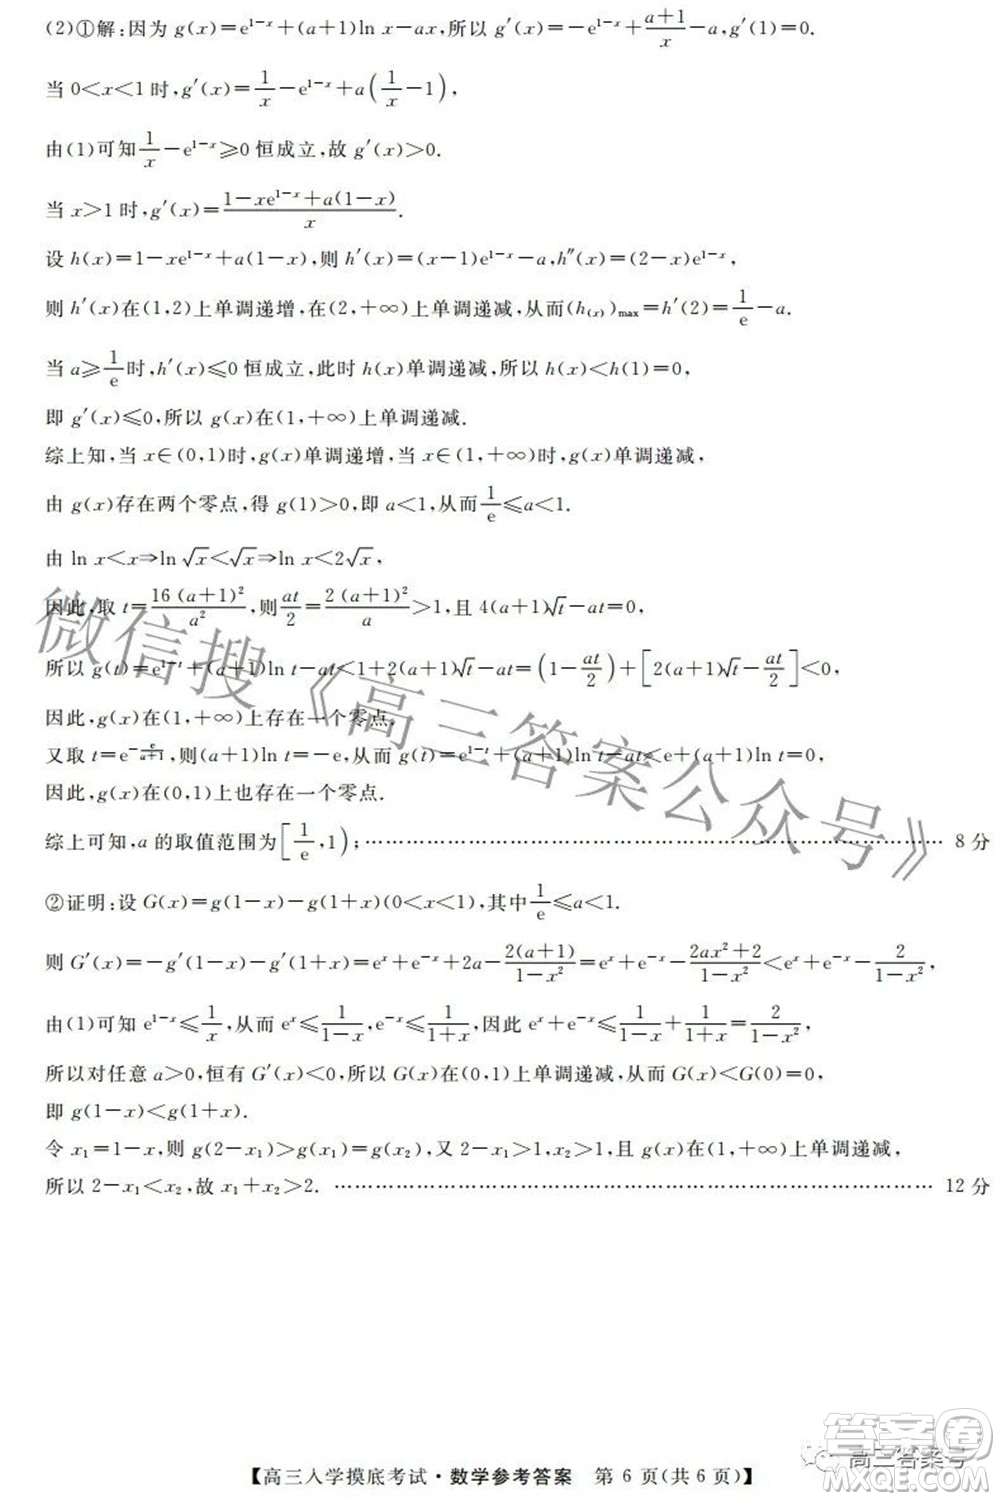 (2)①解:因为 g(x)=e^{1-x}+(a+1)ln x-ax,所以 g′(x)=-e^{1-x}+\frac{a+1}{x}-a,g′(1)=0.
当 0<x<1 时,g′(x)=\frac{1}{x}-e^{1-x}+a(\frac{1}{x}-1),
由(1)可知\frac{1}{x}-e^{1-x}≥0 恒成立,故 g′(x)>0.
当 x>1 时,g′(x)=\frac{1-xe^{1-x}+a(1-x)}{x}.
设 h(x)=1-xe^{1-x}+a(1-x),则 h′(x)=(x-1)e^{1-x}-a,h″(x)=(2-x)e^{1-x},
则 h′(x)在(1,2)上单调递增,在(2,+∞)上单调递减,从而(h_{(x)})_{max}=h′(2)=\frac{1}{e}-a.
当 a≥\frac{1}{e}时,h′(x)≤0 恒成立,此时 h(x)单调递减,所以 h(x)<h(1)=0,
即 g′(x)≤0,所以 g(x)在(1,+∞)上单调递减.
综上知,当 x∈(0,1)时,g(x)单调递增,当 x∈(1,+∞)时,g(x)单调递减,
由 g(x)存在两个零点,得 g(1)>0,即 a<1,从而\frac{1}{e}≤a<1.
由 ln x<x⇒ln√x<√x⇒ln x<2√x,
因此,取 t=\frac{16(a+1)^2}{a^2},则\frac{at}{2}=\frac{2(a+1)^2}{a}>1,且 4(a+1)√t-at=0,
所以 g(t)=e^{1-t}+(a+1)ln t-at<1+2(a+1)√t-at=(1-\frac{at}{2})+[2(a+1)√t-\frac{at}{2}]<0,
因此,g(x)在(1,+∞)上存在一个零点.
又取 t=e^{-\frac{e}{a+1}},则(a+1)ln t=-e,从而 g(t)=e^{1-t}+(a+1)ln t-at<e+(a+1)ln t=0,
因此,g(x)在(0,1)上也存在一个零点.
综上可知,a 的取值范围为[\frac{1}{e},1);…………………………………………………………… 8 分
②证明:设 G(x)=g(1-x)-g(1+x)(0<x<1),其中\frac{1}{e}≤a<1.
则 G′(x)=-g′(1-x)-g′(1+x)=e^x+e^{-x}+2a-\frac{2(a+1)}{1-x^2}=e^x+e^{-x}-\frac{2ax^2+2}{1-x^2}<e^x+e^{-x}-\frac{2}{1-x^2},
由(1)可知 e^{1-x}≤\frac{1}{x},从而 e^x≤\frac{1}{1-x},e^{-x}≤\frac{1}{1+x},因此 e^x+e^{-x}≤\frac{1}{1-x}+\frac{1}{1+x}=\frac{2}{1-x^2},
所以对任意 a>0,恒有 G′(x)<0,所以 G(x)在(0,1)上单调递减,从而 G(x)<G(0)=0,
即 g(1-x)<g(1+x).
令 x_1=1-x,则 g(2-x_1)>g(x_1)=g(x_2),又 2-x_1>1,x_2>1,且 g(x)在(1,+∞)上单调递减,
所以 2-x_1<x_2,故 x_1+x_2>2. …………………………………………………………… 12 分
微信搜《高三答案公众号》
答案圈
MXQE.COM
高三答案号
【高三入学摸底考试·数学参考答案 第 6 页(共 6 页)】